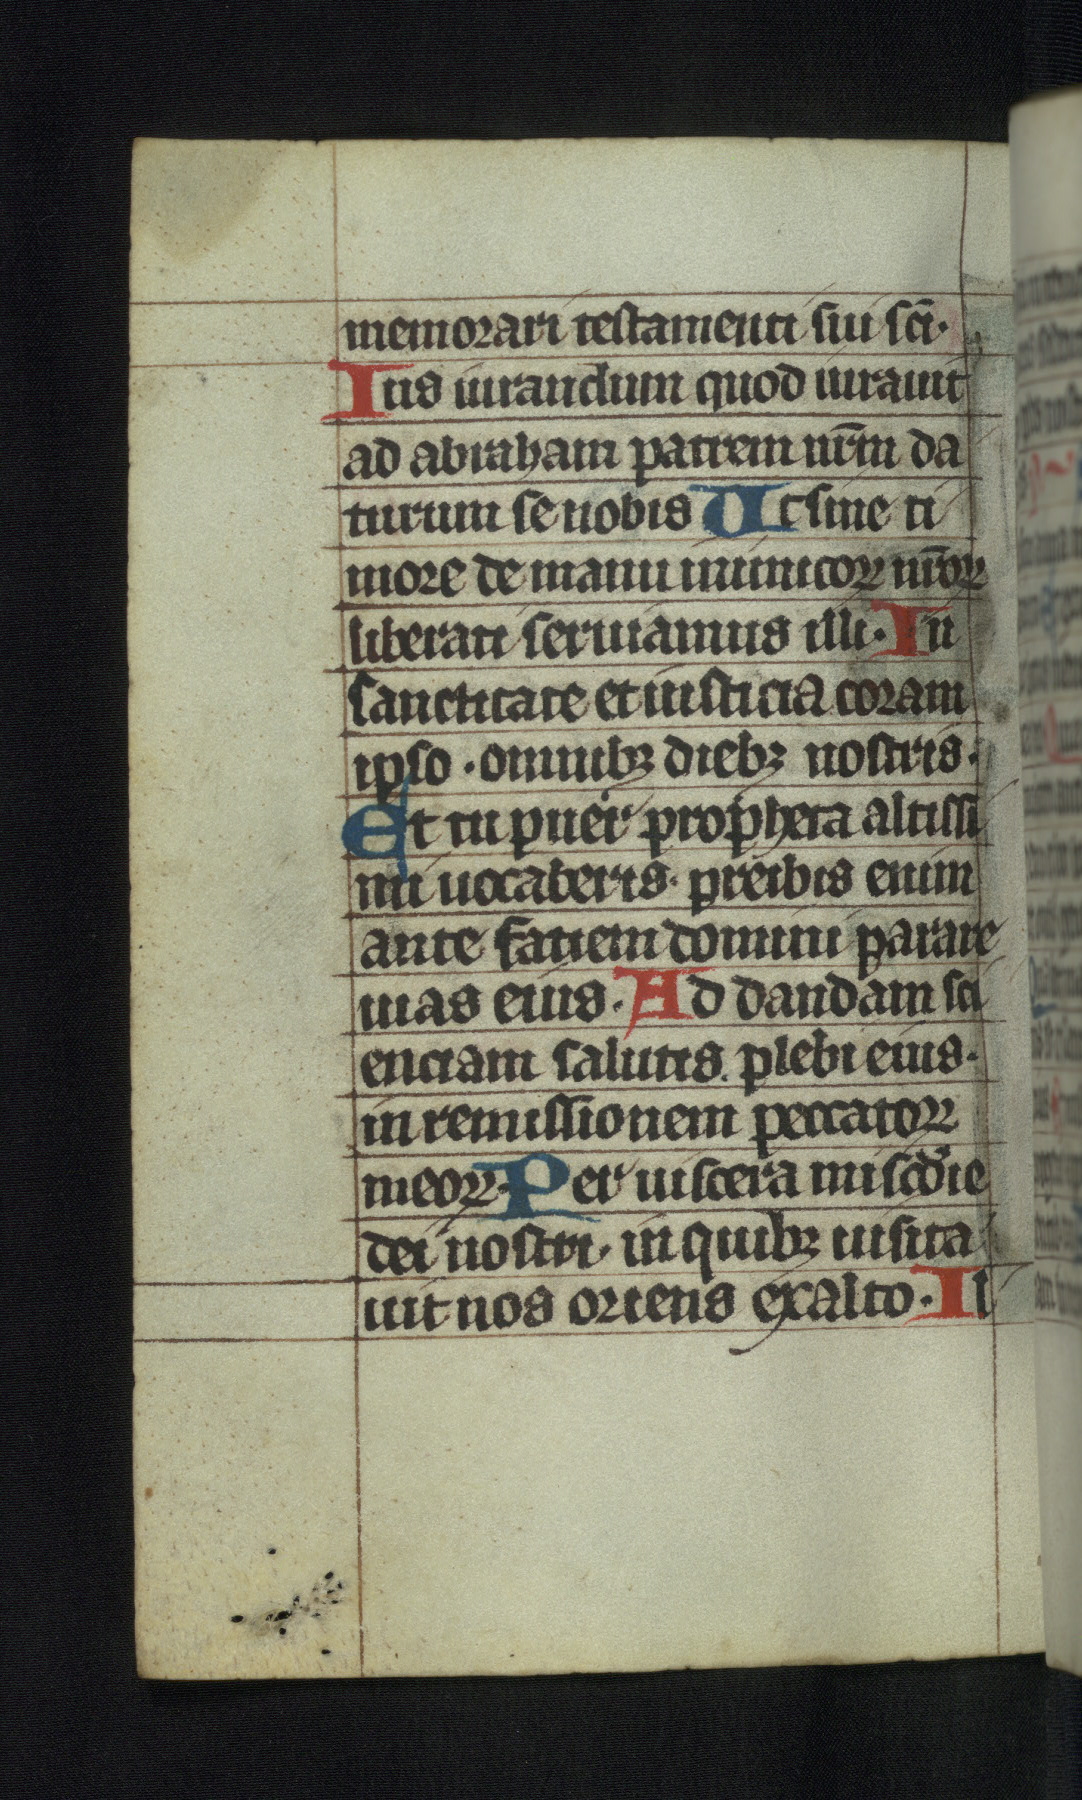 memorari testamenti sui sc̄i·
Ius iurandum quod iurauit
ad abraham patrem nr̄m da
turum se nobis Ut sine ti
more de manu inimicoꝝ nr̄oꝝ
liberati seruiamus illi· In
sanctitate et iusticia coram
ipso · omnibꝫ diebꝫ nostris·
Et tu puer propheta altissi
mi uocaberis· preibis enim
ante faciem domini parare
uias eius· Ad dandam sci
enciam salutis plebi eius·
in remissionem peccatoꝝ
meoꝝ· Per uiscera misc̄die
dei nostri· in quibꝫ uisita
uit nos oriens exalto· Il